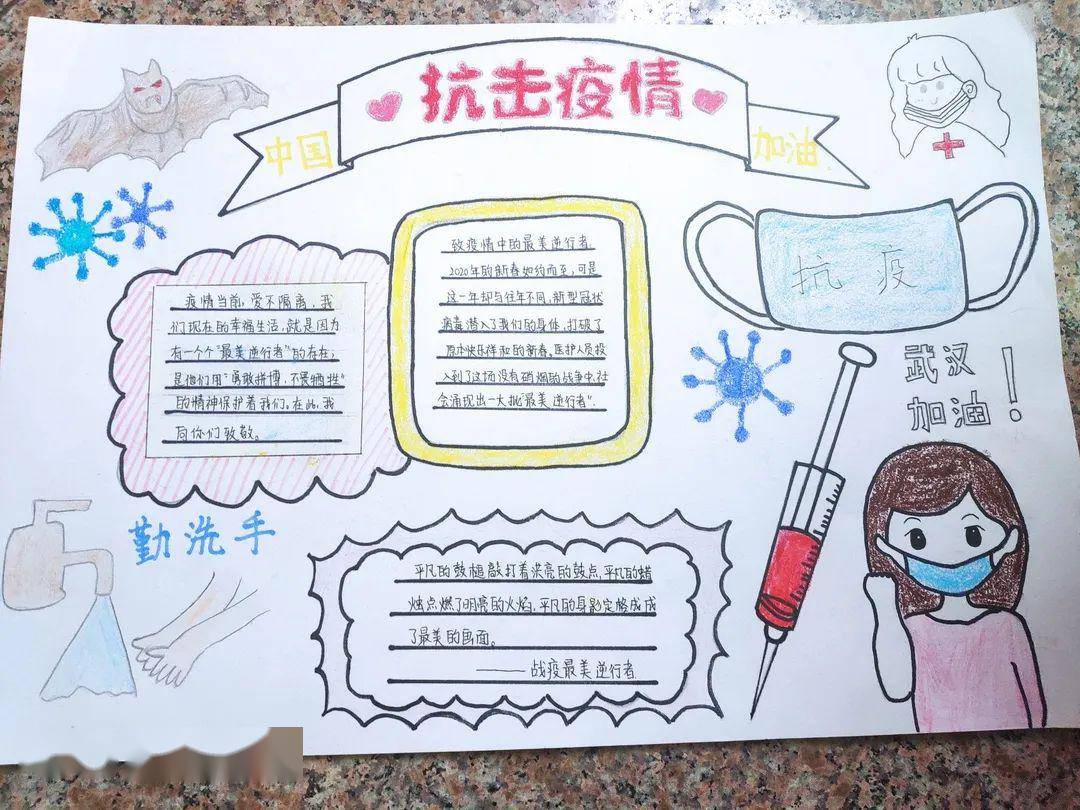 抗击疫情
中国
加油
抗疫
致疫情中的最美逆行者
2020年的新春如约而至,可是
这一年却与往年不同,新型冠状
病毒潜入了我们的身体,打破了
原本快乐祥和的新春。医护人员投
入到了这场没有硝烟的战争中,社
会涌现出一大批"最美逆行者".
疫情当前,爱不隔离,我
们现在的幸福生活,就是因为
有一个个"最美逆行者"的存在;
是他们用"勇敢拼搏,不畏牺牲"
的精神保护着我们。在此,我
向你们致敬。
武汉
加油!
勤洗手
平凡的鼓槌敲打着洪亮的鼓点,平凡的蜡
烛点燃了明亮的火焰,平凡的身影定格成成
了最美的画面。
——战疫最美逆行者